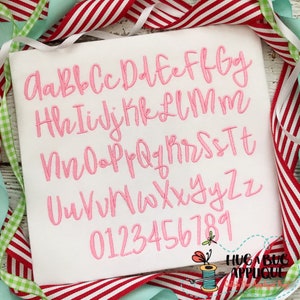 AaBbCcDdEeFfGg
HhIiJjKkLlMm
NnOoPpQqRrSsTt
UuVvWwXxYyZz
0123456789
HUG A BUG
APPLIQUE